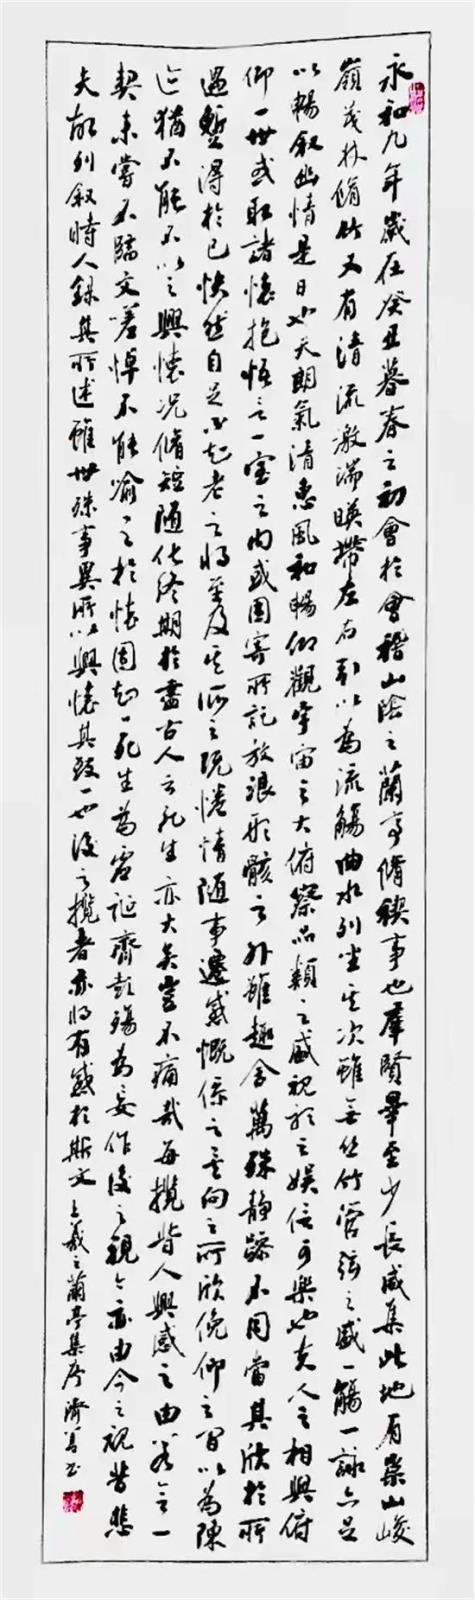 永和九年歲在癸丑暮春之初會於會稽山陰之蘭亭脩稧事也羣賢畢至少長咸集此地有崇山峻
嶺茂林脩竹又有清流激湍暎帶左右引以為流觴曲水列坐其次雖無絲竹管弦之盛一觴一詠亦足
以暢敘幽情是日也天朗氣清惠風和暢仰觀宇宙之大俯察品類之盛視聽之娛信可樂也夫人之相與俯
仰一世或取諸懷抱悟言一室之內或因寄所託放浪形骸之外雖趣舍萬殊靜躁不同當其欣於所
遇蹔得於己快然自足不知老之將至及其所之既惓情隨事遷感慨係之矣向之所欣俛仰之間以為陳
迹猶不能不以之興懷況脩短隨化終期於盡古人云死生亦大矣豈不痛哉每攬昔人興感之由若合一
契未嘗不臨文嗟悼不能喻之於懷固知一死生為虛誕齊彭殤為妄作後之視今亦由今之視昔悲
夫故列敘時人錄其所述雖世殊事異所以興懷其致一也後之攬者亦將有感於斯文 王羲之蘭亭集序 濟善書